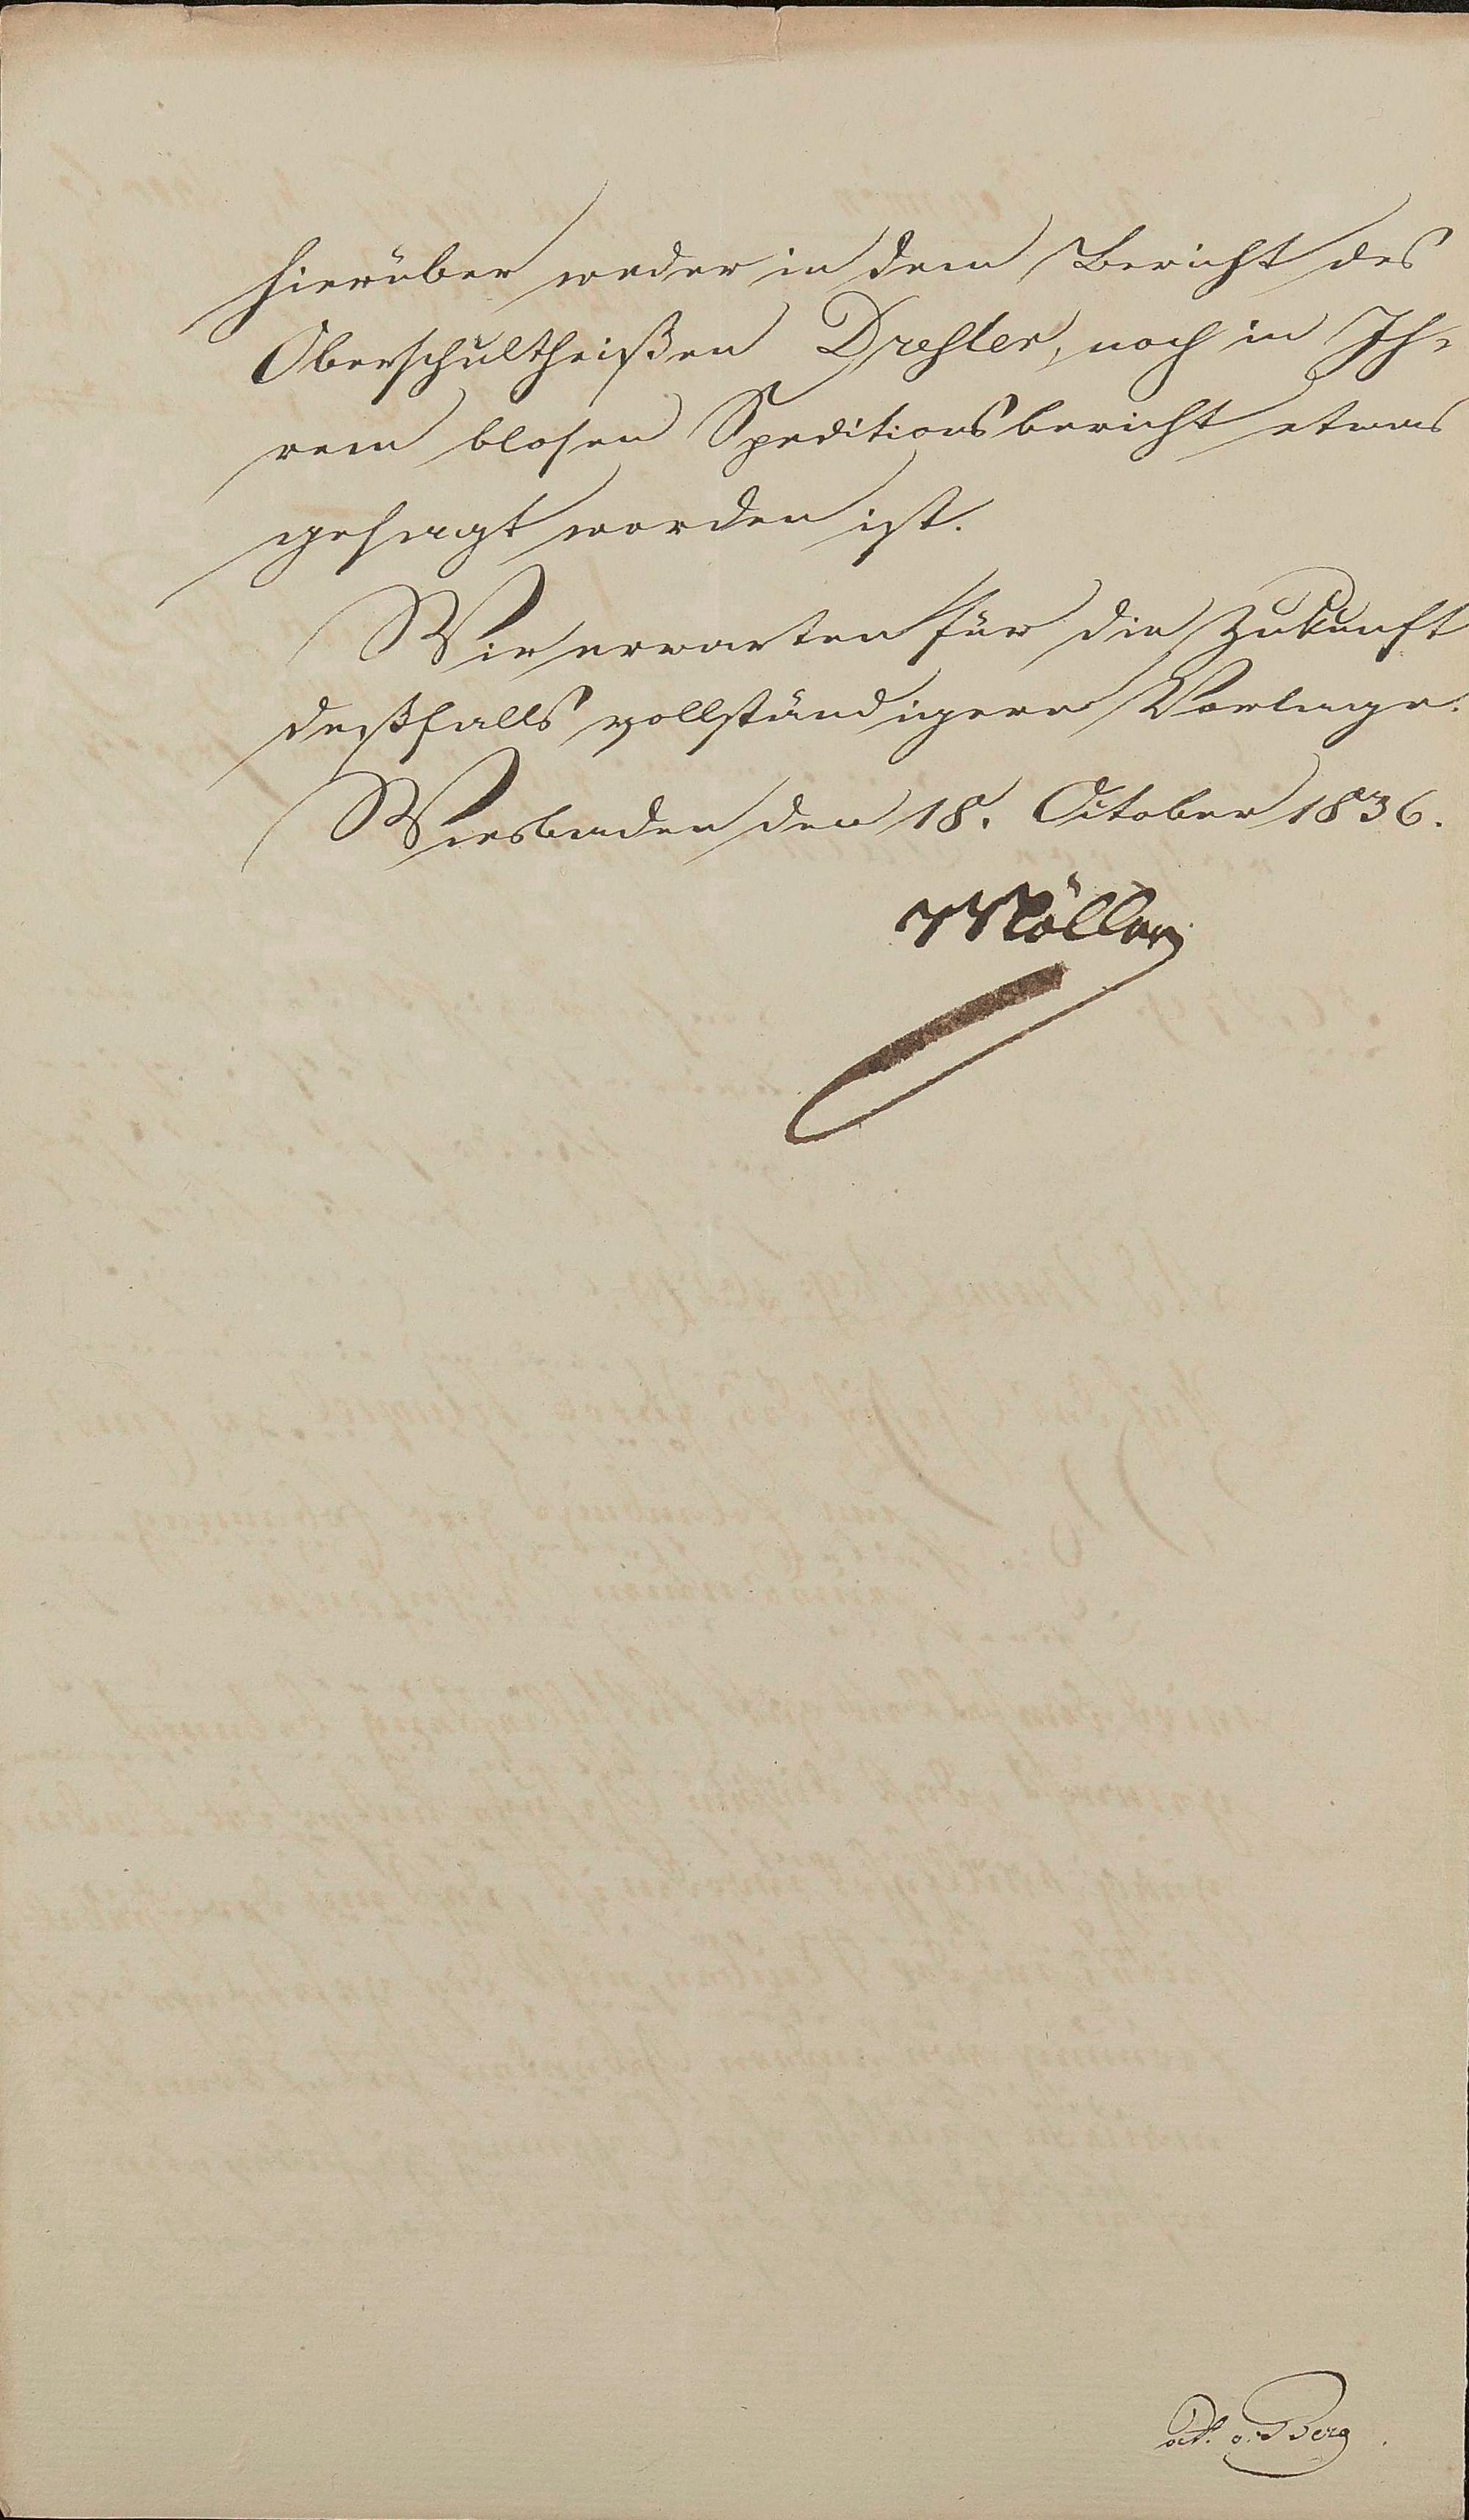 hierüber weder in dem Bericht des
Oberschultheißen Dresler, noch in Ih-
rem blosen Speditionsbericht etwas
gesagt worden ist.
Wir erwarten für die Zukunft
deßfalls vollständigere Vorlage.
Wiesbaden den 18. October 1836.
Möller
vdt. v. Berg